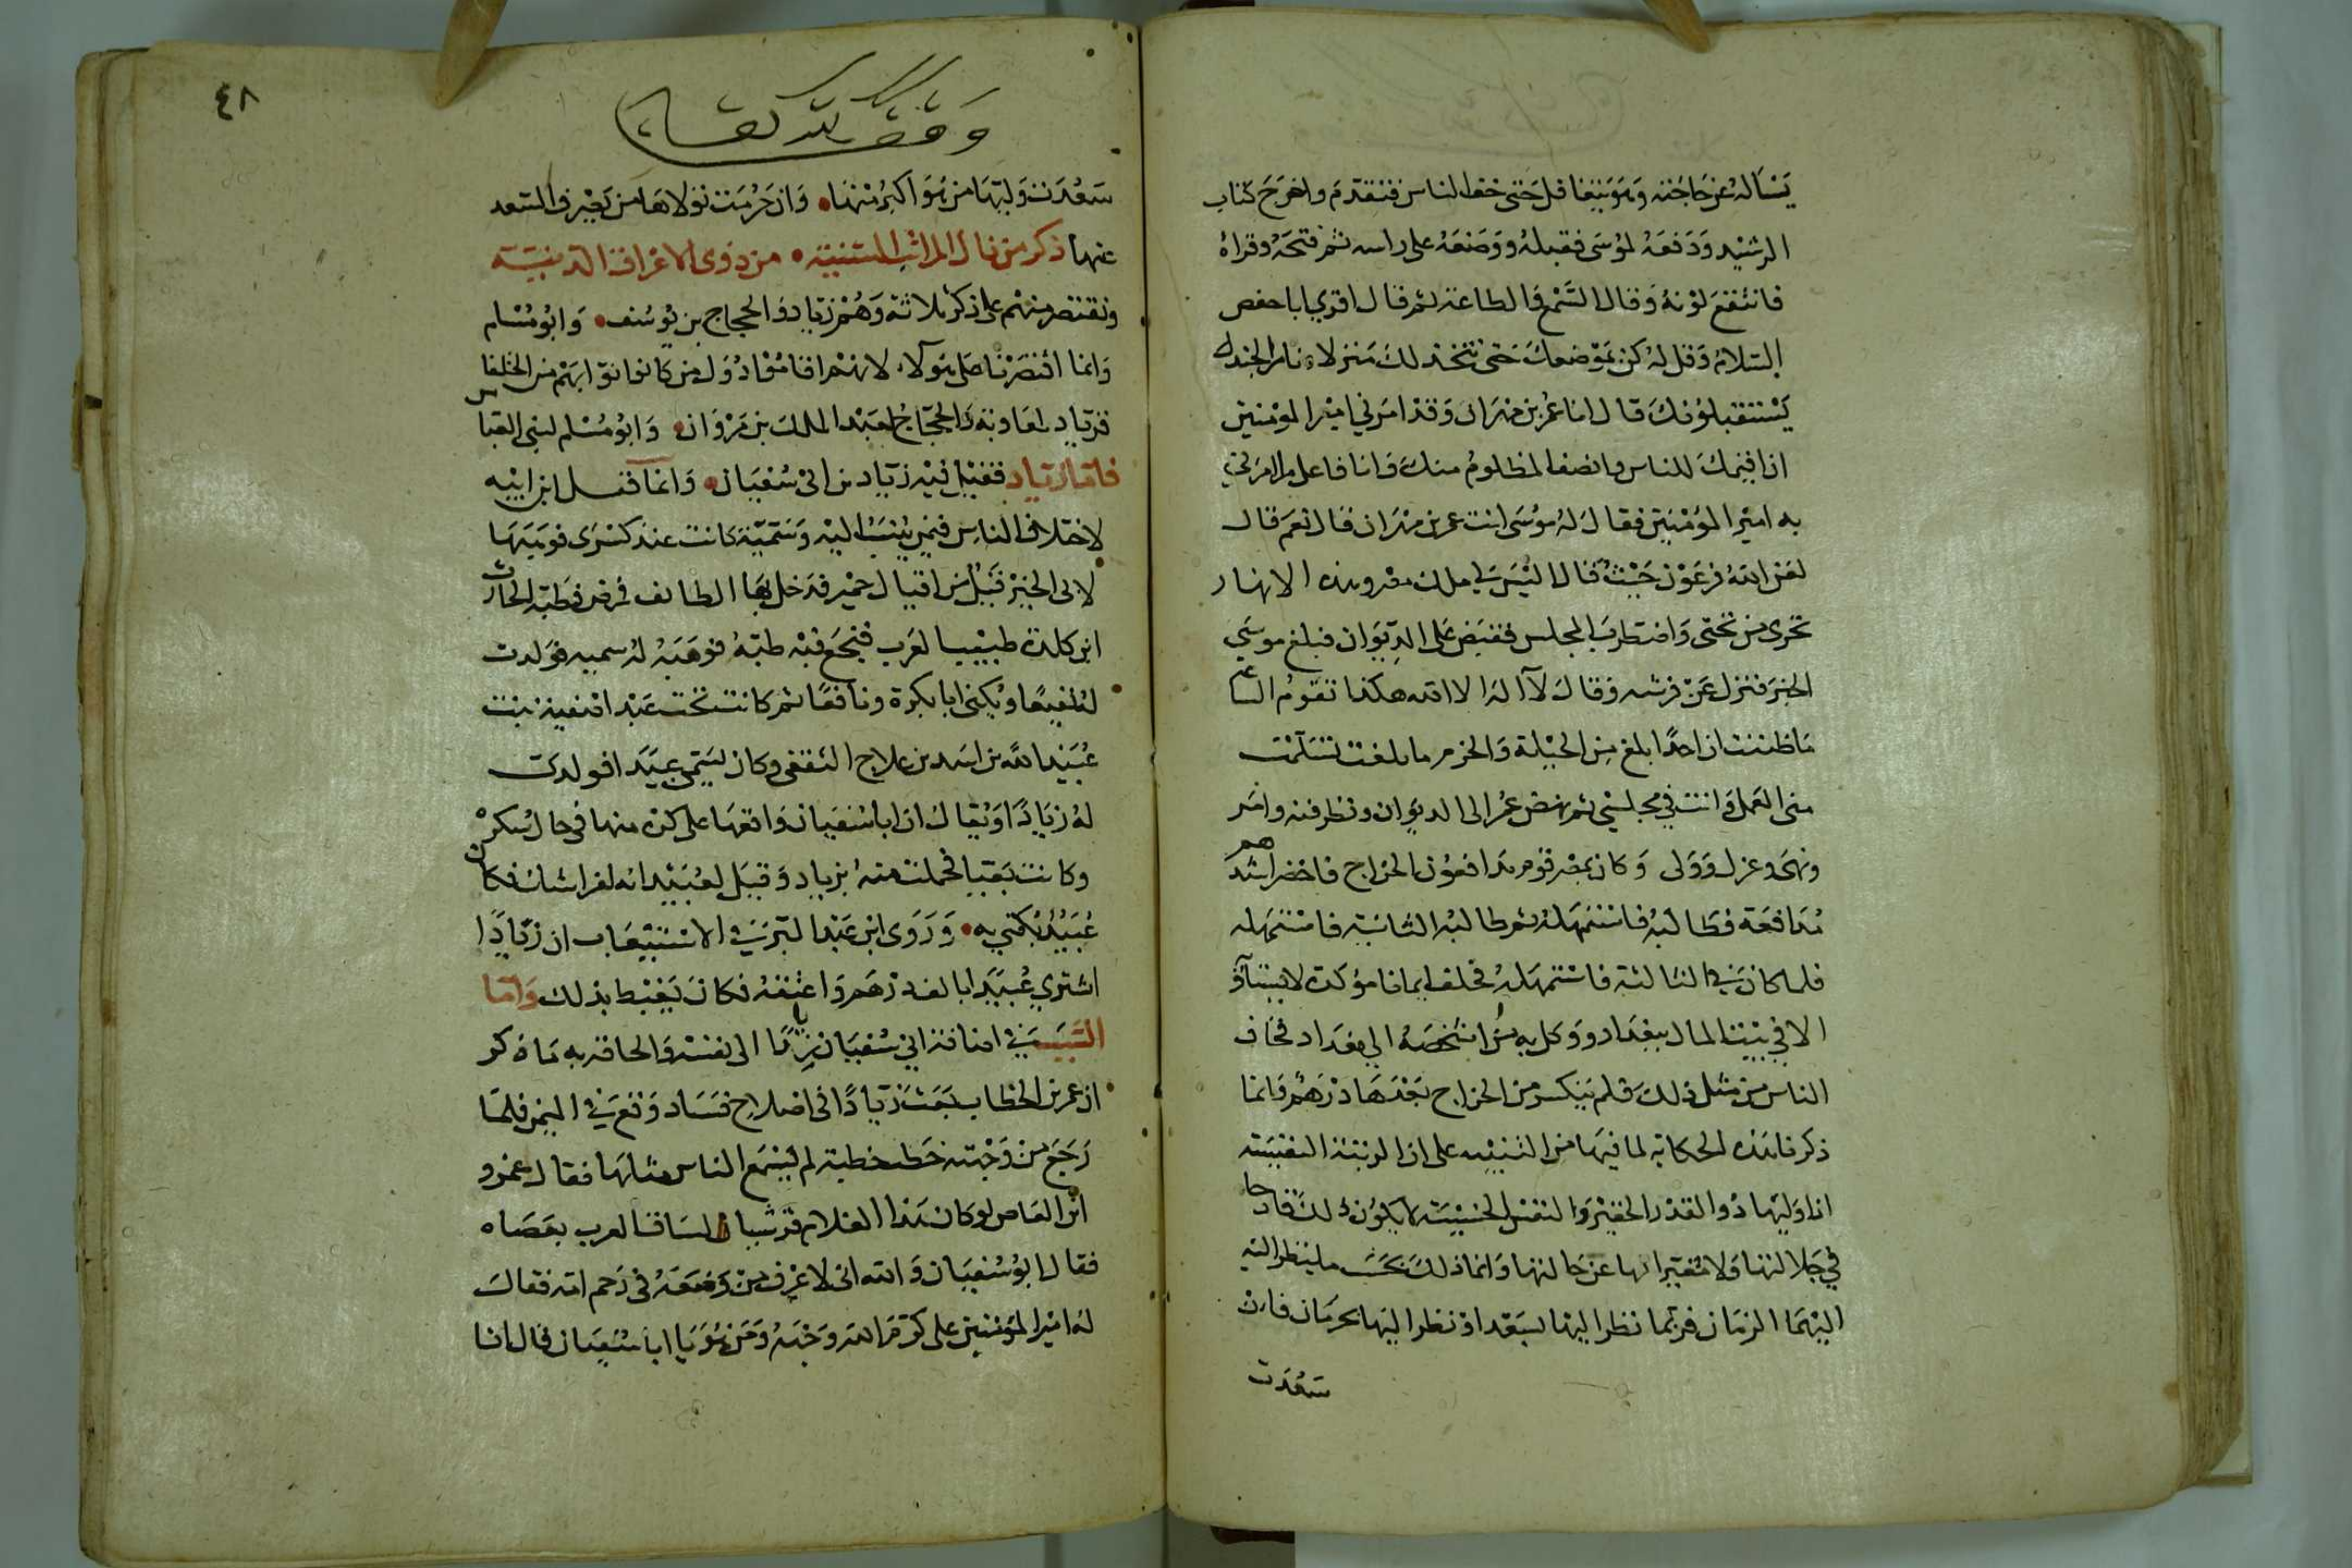 يسأله عن حاجته وهو يتغافل حتى خف الناس فتقدم واخرج كتاب
الرشيد ودفعه لموسى فقبله ووضعه على راسه ثم فتحه وقراه
فانتقع لونه وقال السمع والطاعة ثم قال اقري ابا حفص
السلام وقل له كن بموضعك حتى نتخذ لك منزلا ونامر الجند
يستقبلونك قال انا عمر بن مهران وقد امرني امير المومنين
ان اقيمك للناس وانصف المظلوم منك وانا فاعل ما امرني
به امير المؤمنين فقال له موسى انت عمر بن مهران قال نعم قال
لعن الله فرعون حيث قال اليس لي ملك مصر وهذه الانهار
تجري من تحتي واضطرب المجلس فقبض على الديوان فبلغ موسى
الخبر فنزل عن فرشه وقال لا اله الا الله هكذا تقوم الساعة
ما ظننت ان احدا بلغ من الحيلة والحزم ما بلغت تسلمت
مني العمل وانت في مجلسي ثم نهض عمر الى الديوان ونظر فيه وامر
ونهى وعزل وولى وكان بمصر قوم يدافعون الخراج فاحضر اشدهم
مدافعة فطالبه فاستمهله ثم طالبه الثانية فاستمهله
فلما كان في الثالثة فاستمهله فحلف ايمانا مؤكدة لا يستأ
الا في بيت المال ببغداد ووكل به من اشخصه الى بغداد فخاف
الناس من مثل ذلك فلم ينكسر من الخراج بعدها درهم وانما
ذكرنا هذه الحكاية لما فيها من التنبيه على ان الرتبة النفيسة
اذا وليها ذو القدر الحقير والنفس الخسيسة لا يكون ذلك قادحا
في جلالتها ولا مغيرا لها عن حالتها وانما ذلك بحسب ما ينظر اليه
اليهما الزمان فربما نظر اليها بسعد او نظر اليها بحرمان فان
سعدت
٤٨
وقف لله تعالى
سعدت وليها من هو اكبر منها وان حرمت تولاها من تغير في السعد
عنها ذكر من نال المراتب السنية من ذوي الاعراق الدنية
ونقتصر منهم على ذكر ثلاثة وهم زياد والحجاج بن يوسف وابو مسلم
وانما اقتصرنا على هولاء لانهم اقاموا دول من كانوا نوابهم من الخلفا
فزياد لمعاوية والحجاج لعبد الملك بن مروان وابو مسلم لبني العباس
فاما زياد فقيل فيه زياد بن ابي سفيان وانما قيل ابن ابيه
لاختلاف الناس فيمن ينسب اليه وسمية كانت عند كسرى فوهبها
لابي الخير قيل من اقيال حمير فدخل بها الطائف فمرض فطبه الحارث
ابن كلدة طبيب العرب فنجع فيه طبه فوهبه له سمية فولدت
له نفيعا ويكنى ابا بكرة ونافعا ثم كانت تحت عبد لصفية بنت
عبيد الله بن اسد بن علاج الثقفي وكان يسمى عبيدا فولدت
له زيادا ويقال ان ابا سفيان واقعها على كره منها في حال سكر
وكانت بغيا فحملت منه بزياد وقيل لعبيد انه لفراشك فكان
عبيد يكتني به وروى ابن عبد البر في الاستيعاب ان زيادا
اشتري عبيدا بالف درهم واعتقه فكان يغبط بذلك واما
السبب في اضافة ابي سفيان زيادا الى نفسه والحاقه به ما ذكر
ان عمر بن الخطاب بعث زيادا في اصلاح فساد وقع في اليمن فلما
رجع من وجهته خطب خطبة لم يسمع الناس مثلها فقال عمرو
ابن العاص لو كان هذا الغلام قرشيا لساق العرب بعصاه
فقال ابو سفيان والله اني لاعرف من وضعه في رحم امه فقال
له امير المؤمنين علي كرم الله وجهه ومن هو يا ابا سفيان قال انا